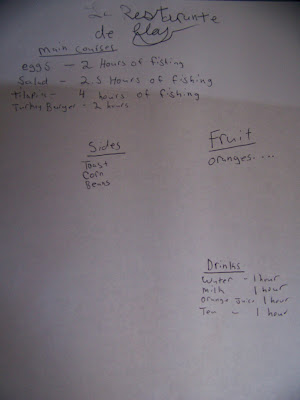 La Resturante
de
main courses
eggs - 2 Hours of fishing
Salad - 2.5 Hours of fishing
Tilapia - 4 hours of fishing
Turkey Burger - 2 hours
Sides
Toast
Corn
Beans
Fruit
oranges....
Drinks
Water - 1 hour
milk 1 hour
orange Juice 1 hour
Tea - 1 hour